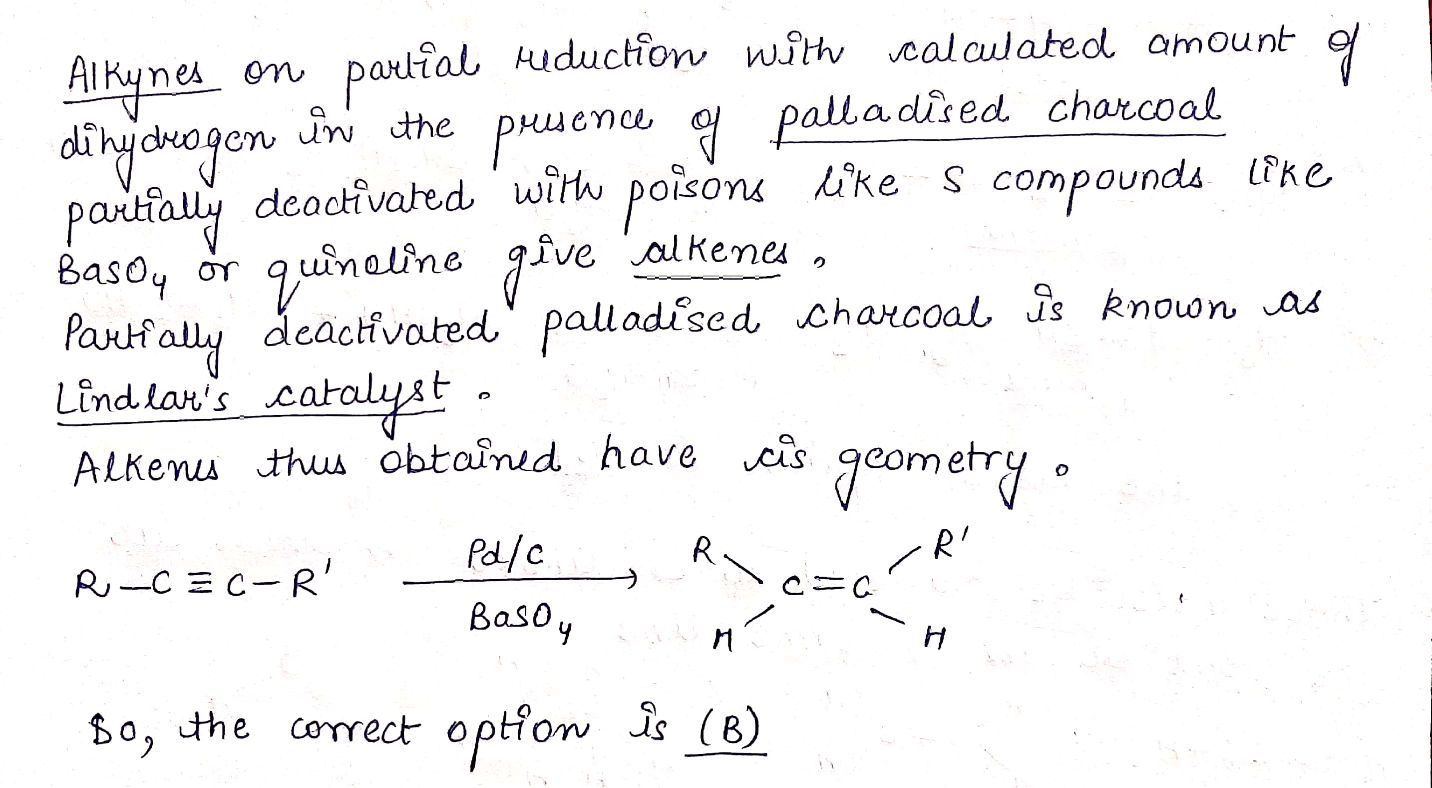 Alkynes on partial reduction with calculated amount of
dihydrogen in the presence of palladised charcoal
partially deactivated with poisons like S compounds like
BaSO₄ or quinoline give alkenes.
Partially deactivated palladised charcoal is known as
Lindlar's catalyst.
Alkenes thus obtained have cis geometry.
Pd/C R R'
R—C≡C—R' → C=C
BaSO₄ H H
So, the correct option is (B)